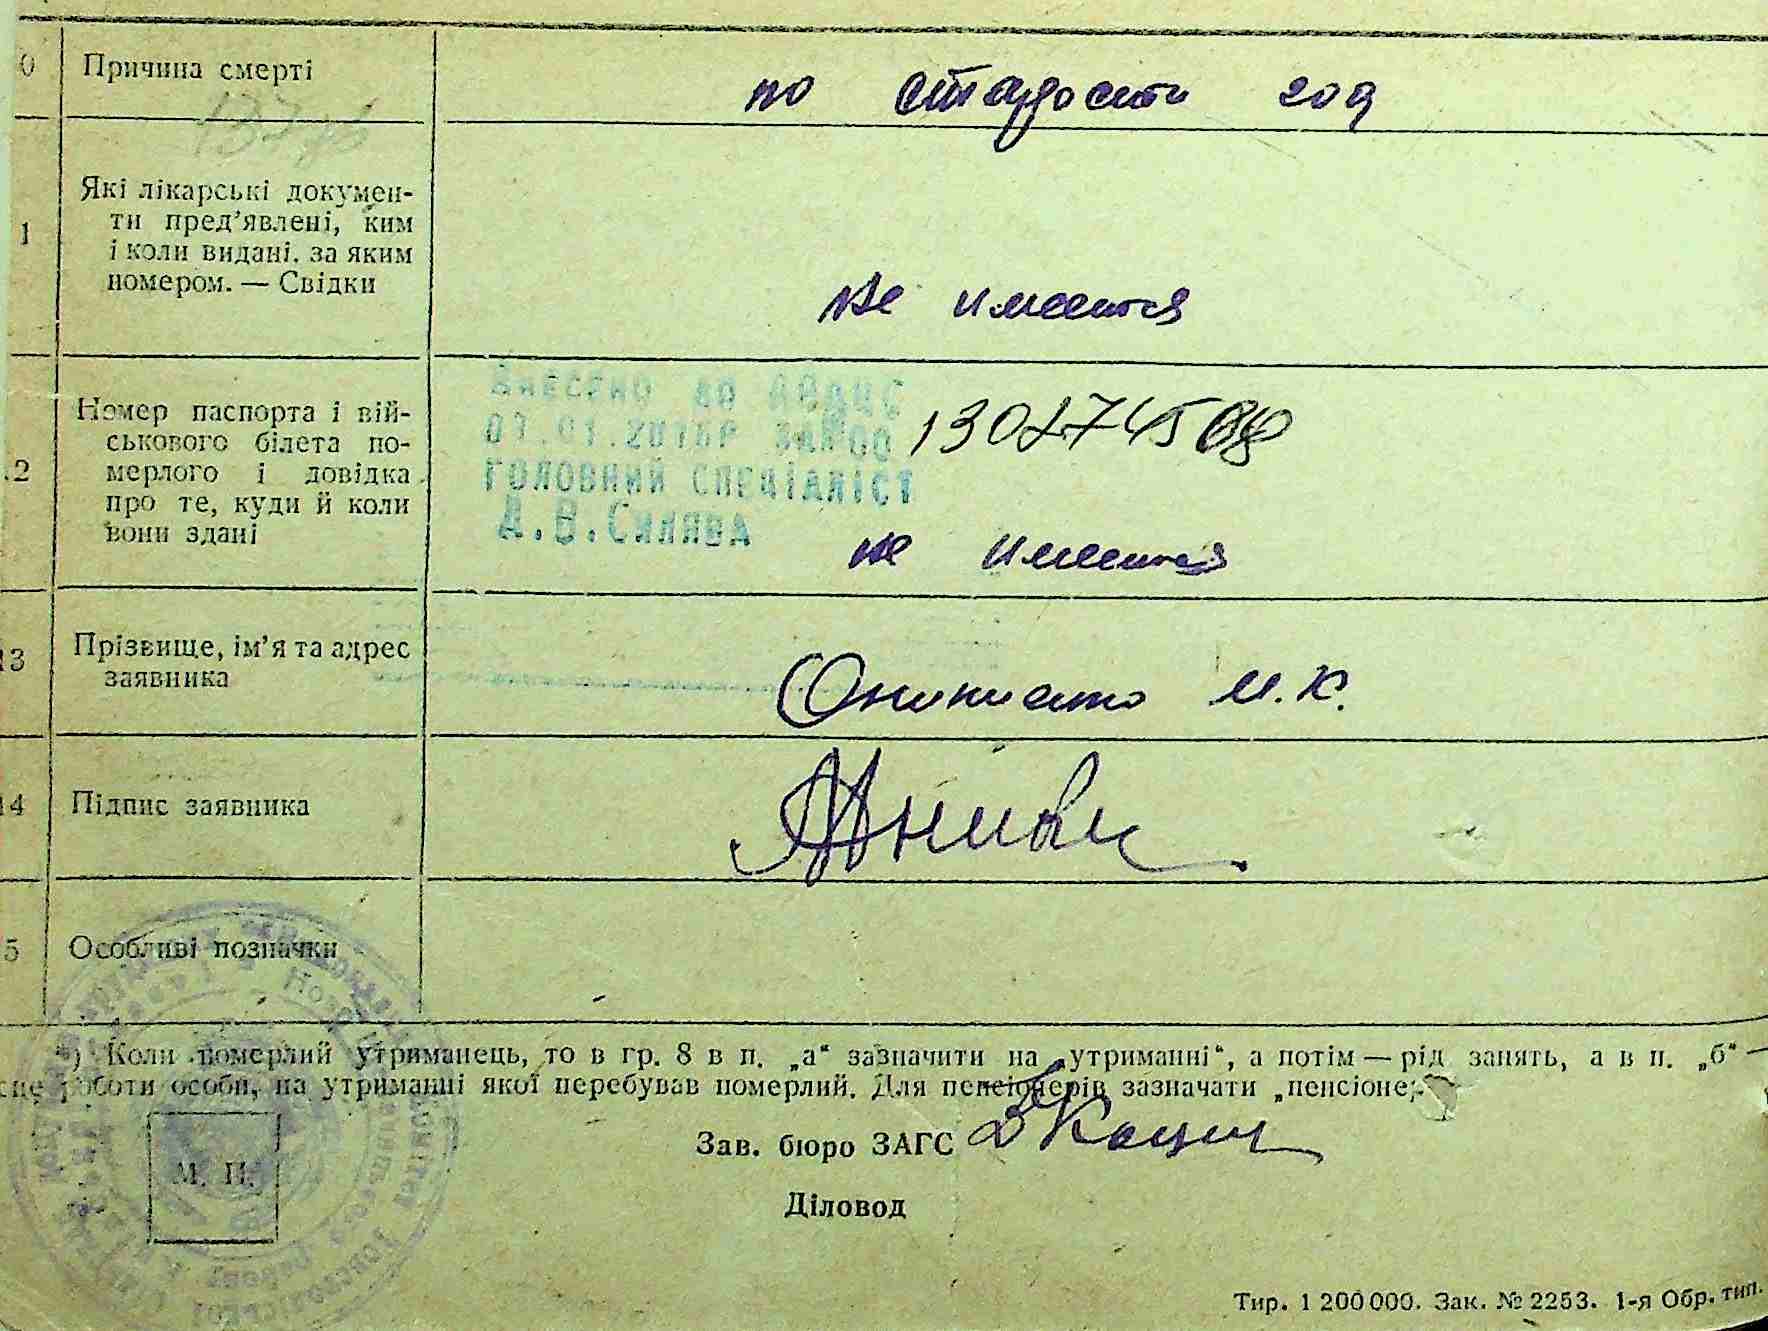 0 Причина смерті
по старости год
1 Які лікарські докумен-
ти пред’явлені, ким
і коли видані. за яким
номером. — Свідки
не имеется
.2 Номер паспорта і вій-
ськового білета по-
мерлого і довідка
про те, куди й коли
вони здані
Внесено до
ГОЛОВНИЙ СПЕЦІАЛІСТ
не имеется
13 Прізвище, ім’я та адрес
заявника
М. К.
14 Підпис заявника
5 Особливі позначки
*) Коли померлий утриманець, то в гр. 8 в п. „а“ зазначити на „утриманні“, а потім — рід занять, а в п. „б“ —
сце роботи особи, на утриманні якої перебував померлий. Для пенсіонерів зазначати „пенсіонер
Зав. бюро ЗАГС
М. П.
Діловод
Тир. 1 200 000. Зак. № 2253. 1-я Обр. тип.